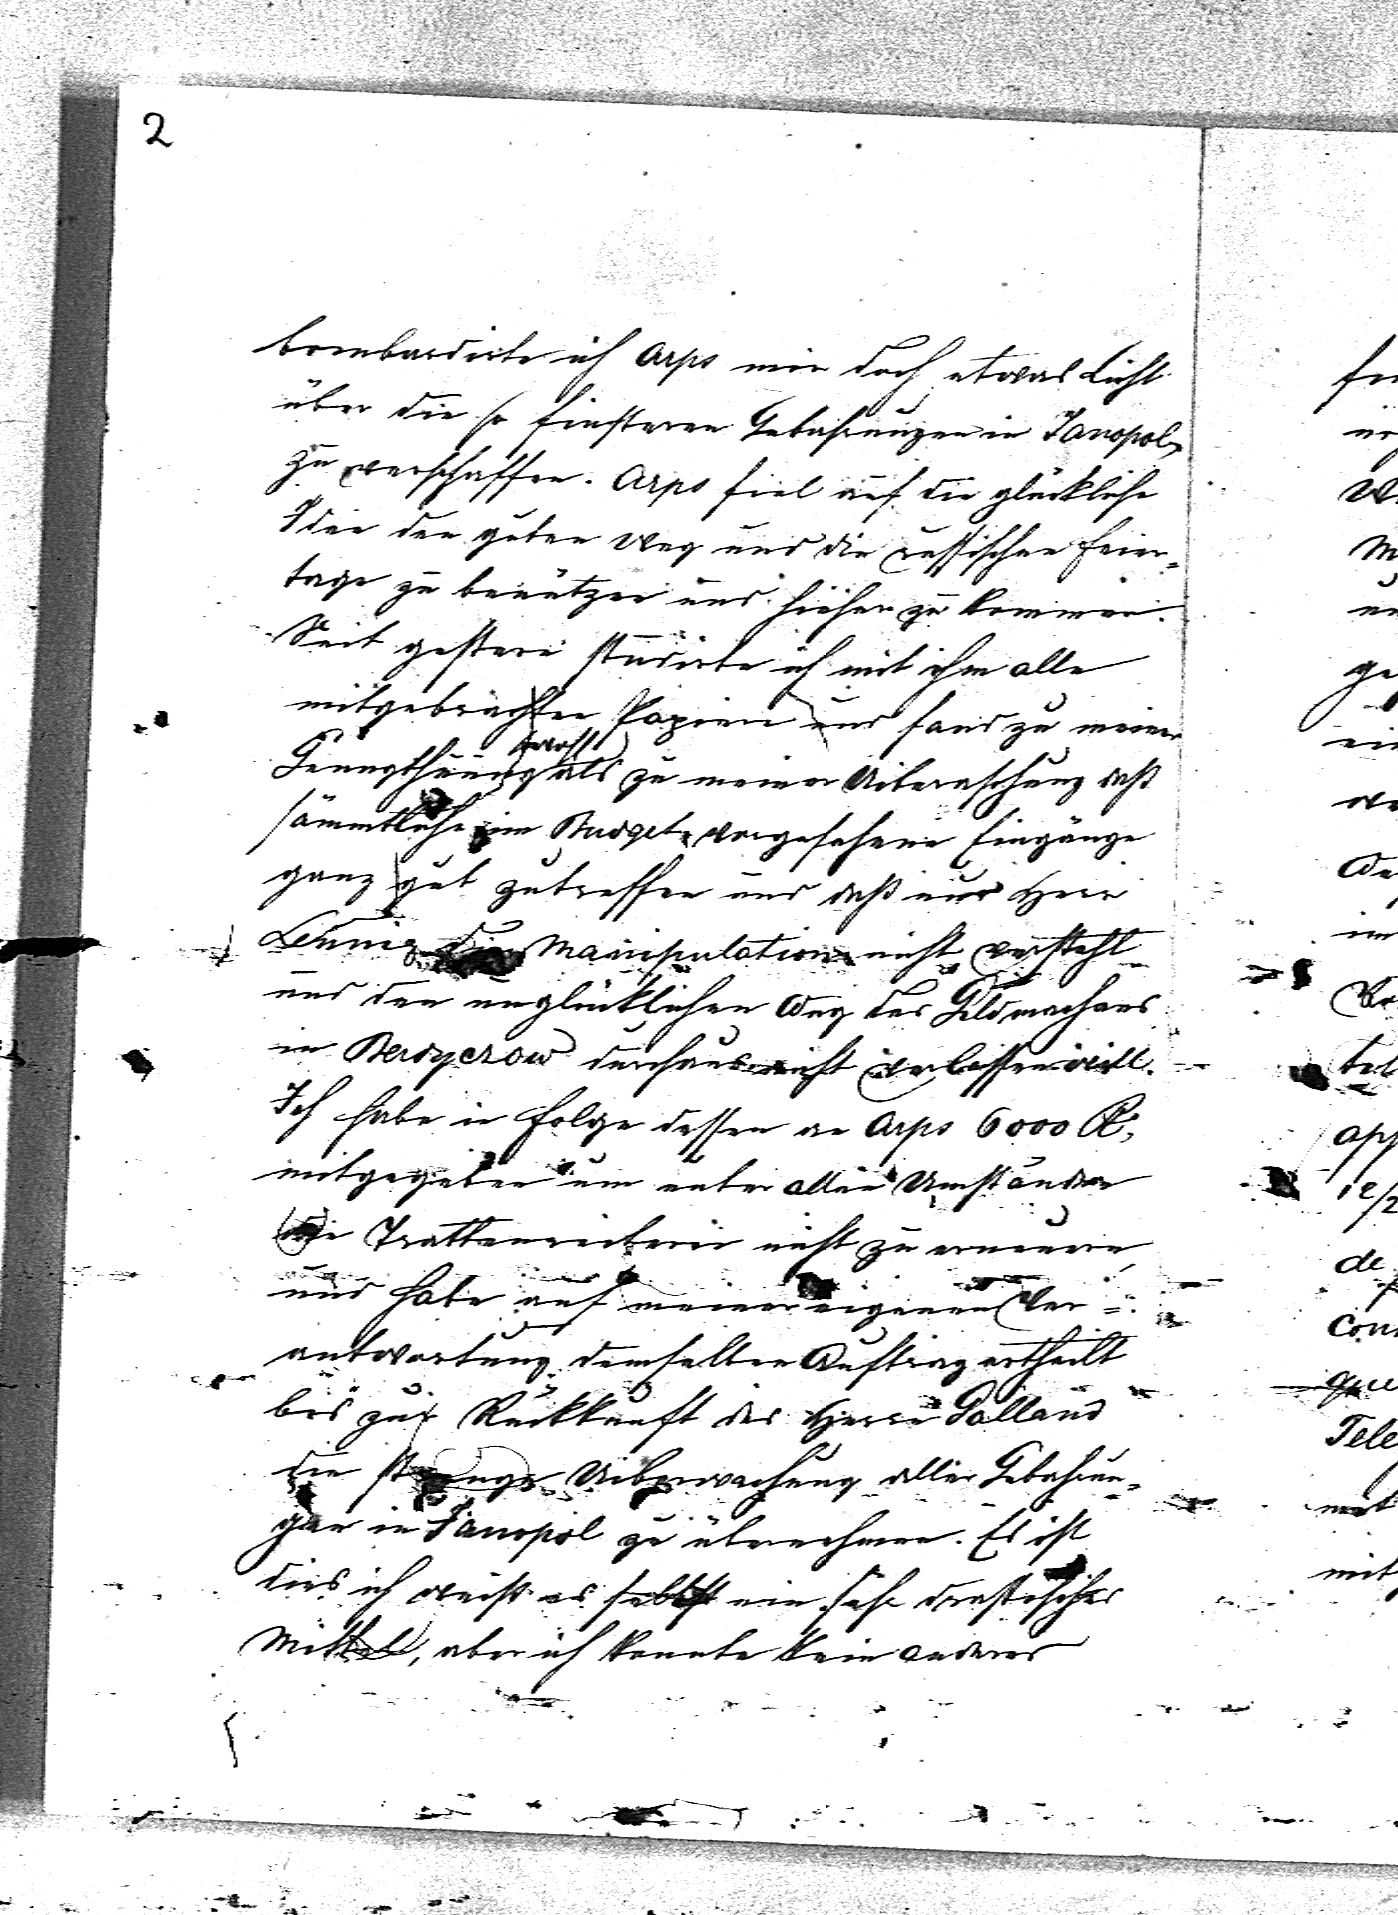 2
bombardirte ich Arps mir doch etwas Licht
über die so finsteren Gebahrungen in Janopol
zu verschaffen. Arps fiel auf die glückliche
Idee den guten Weg und die russischen Feier=
tage zu benützen und hieher zu kommen.
Seit gestern studirte ich mit ihm alle
mitgebrachten Papiere und fand zu meiner
sowohl
Genugthuung als zu meiner Uiberraschung daß
sämmtliche im Budget vorgesehene Eingänge
ganz gut zutreffen und daß nur Herr
die Manipulation nicht versteht
und den unglücklichen Weg des Geldmachens
in Berdyczow durchaus nicht verlassen will.
Ich habe in Folge dessen an Arps 6000 R.
mitgegeben um unter allen Umständen
die Trattenreiterei nicht zu erneuern
und habe auf meiner eigenen Ver=
antwortung demselben Auftrag ertheilt
bis zur Rückkunft des Herrn Galland
die strenge Uiberwachung aller Gebahrun=
gen in Janopol zu übernehmen. Es ist
dies ich weiß es selbst ein sehr drastisches
Mittel, aber ich konnte kein anderes